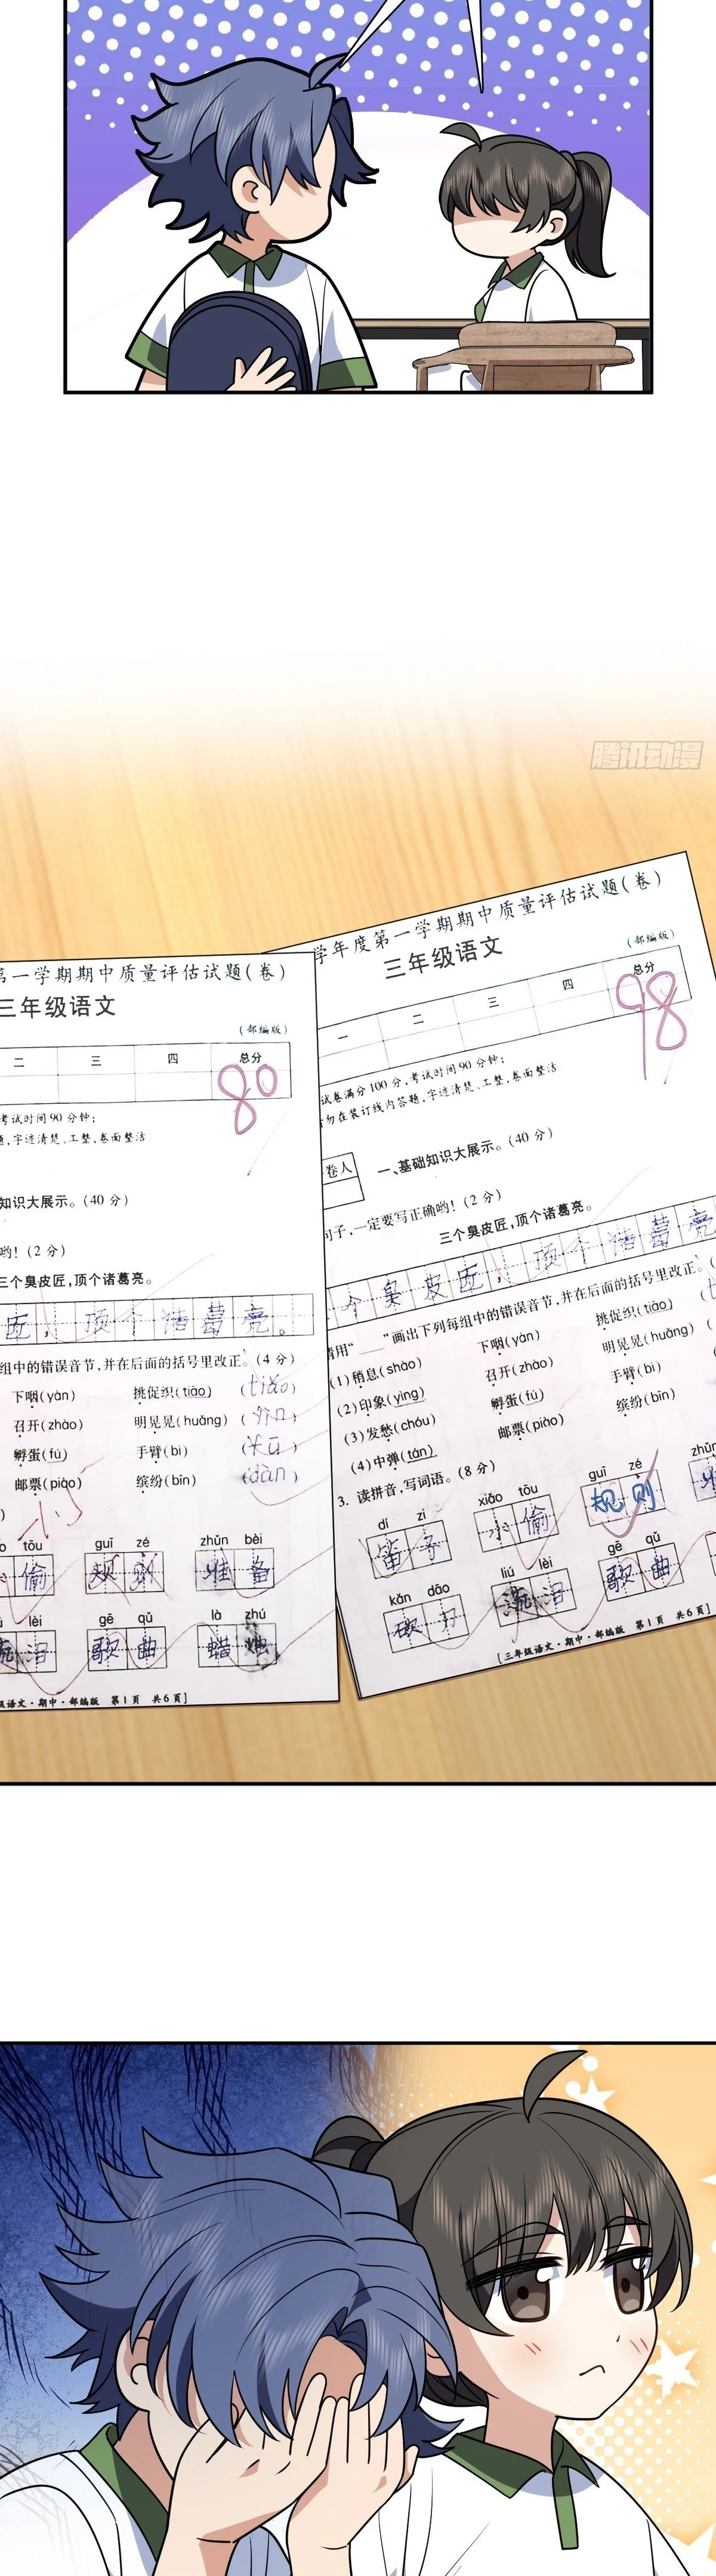 腾讯动漫
学年度第一学期期中质量评估试题(卷)
三年级语文
(部编版)
一 二 三 四 总分
98
试卷满分100分,考试时间90分钟;
勿在装订线内答题,字迹清楚、工整,卷面整洁
卷人
一、基础知识大展示。(40分)
句子,一定要写正确哟!(2分)
三个臭皮匠,顶个诸葛亮。
个臭皮匠,顶个诸葛亮
请用“___”画出下列每组中的错误音节,并在后面的括号里改正。(
(1)稍息(shào) 下咽(yàn) 挑促织(tiāo)
(2)印象(yìng) 召开(zhào) 明晃晃(huǎng) (
(3)发愁(chóu) 孵蛋(fú) 手臂(bì) (
(4)中弹(tán) 邮票(piào) 缤纷(bīn)
3. 读拼音,写词语。(8分)
dí zi xiǎo tōu guī zé zhǔn
笛子 小偷 规则 准
kǎn dāo liú lèi gē qǔ
砍刀 流泪 歌曲
[三年级语文·期中·部编版 第1页 共6页]
第一学期期中质量评估试题(卷)
三年级语文
(部编版)
二 三 四 总分
80
考试时间90分钟;
题,字迹清楚、工整,卷面整洁
知识大展示。(40分)
哟!(2分)
三个臭皮匠,顶个诸葛亮。
匠,顶个诸葛亮。
组中的错误音节,并在后面的括号里改正。(4分)
下咽(yàn) 挑促织(tiāo) (tiǎo)
召开(zhào) 明晃晃(huǎng)
孵蛋(fú) 手臂(bì) (fū)
邮票(piào) 缤纷(bīn) (dàn)
)
小
o tōu guī zé zhǔn bèi
偷 规则 准备
lèi gē qǔ là zhú
流泪 歌曲 蜡烛
级语文·期中·部编版 第1页 共6页]